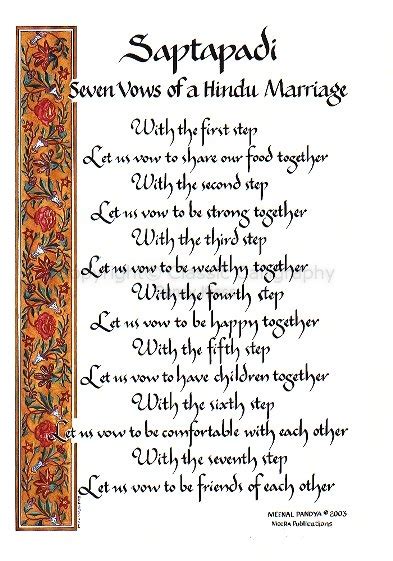 Saptapadi
Seven Vows of a Hindu Marriage
With the first step
Let us vow to share our food together
With the second step
Let us vow to be strong together
With the third step
Let us vow to be wealthy together
With the fourth step
Let us vow to be happy together
With the fifth step
Let us vow to have children together
With the sixth step
Let us vow to be comfortable with each other
With the seventh step
Let us vow to be friends of each other
MEENAL PANDYA © 2003
MeeRA Publications